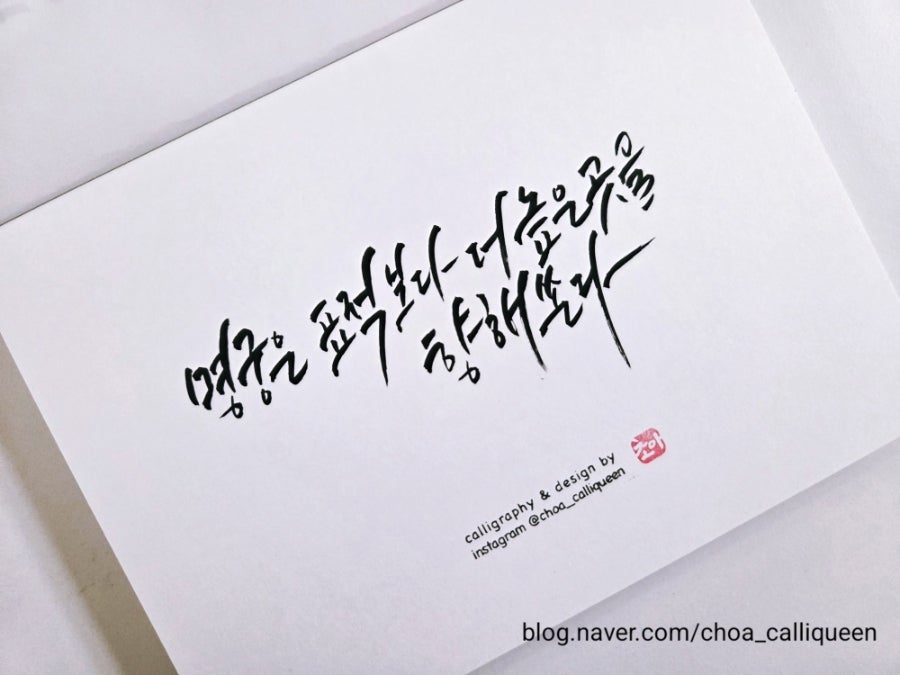 명궁은 표적보다 더 높은 곳을
향해 쏜다
조아
calligraphy & design by
instagram @choa_calliqueen
blog.naver.com/choa_calliqueen